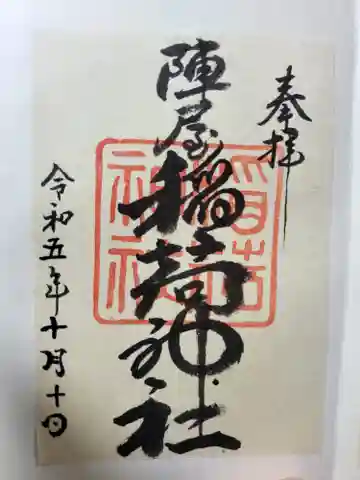 奉拝
陣屋稲荷神社
令和五年十月十日
稲荷
神社